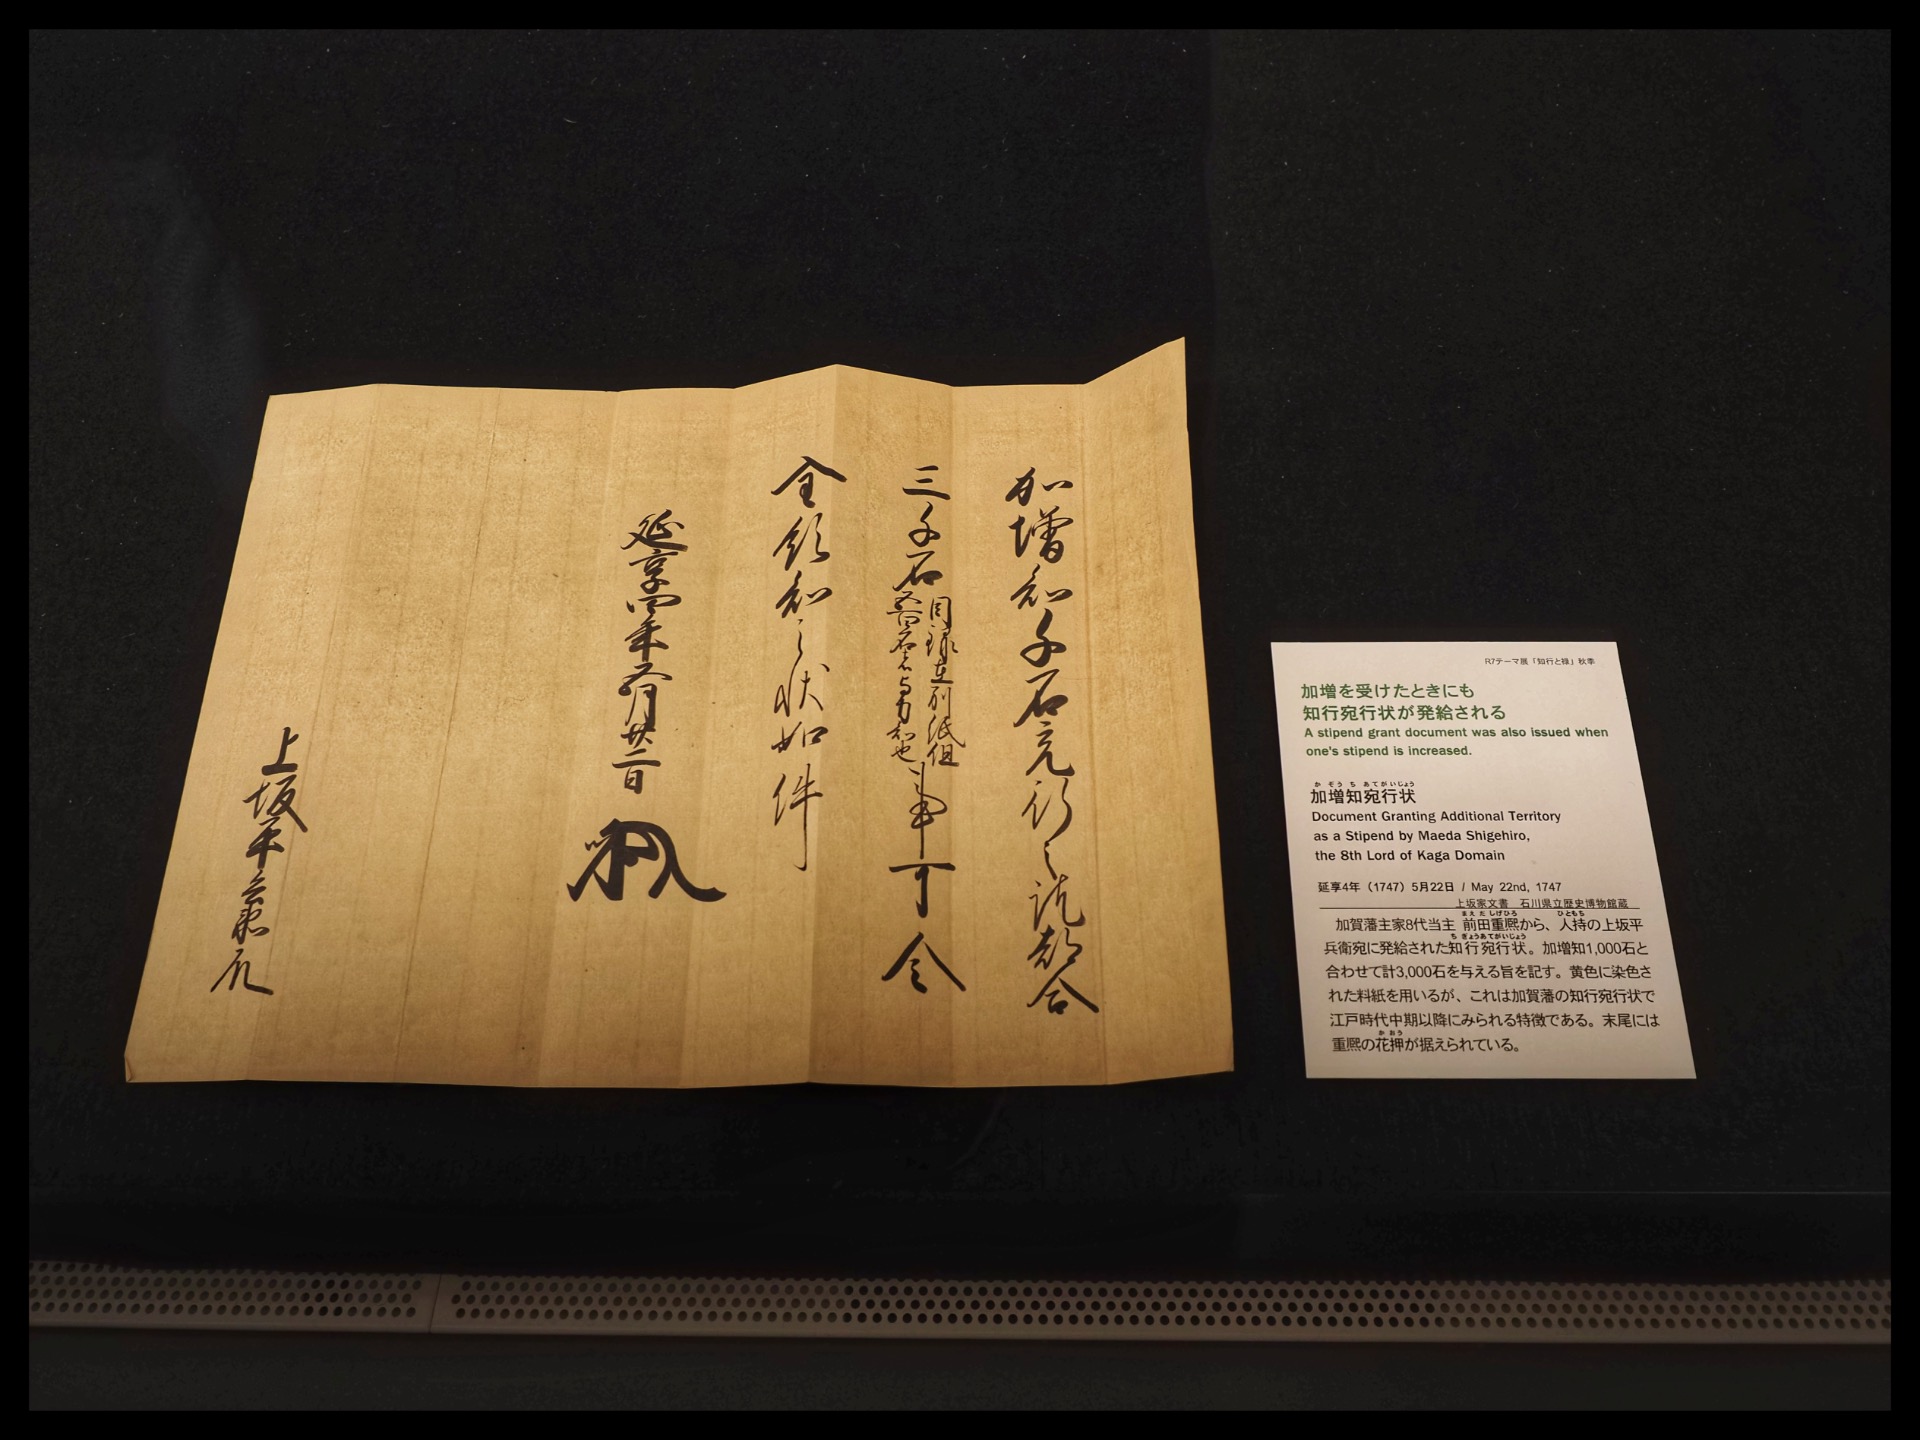 加増知千石充行之訖都合
三千石
目録在別紙但
五百石者与力知也
事可令
全領知之状如件
延享四年五月廿二日
上坂平兵衛殿
R7テーマ展「知行と禄」秋季
加増を受けたときにも
知行宛行状が発給される
A stipend grant document was also issued when
one's stipend is increased.
かぞうちあてがいじょう
加増知宛行状
Document Granting Additional Territory
as a Stipend by Maeda Shigehiro,
the 8th Lord of Kaga Domain
延享4年（1747）5月22日 / May 22nd, 1747
上坂家文書　石川県立歴史博物館蔵
まえだしげひろ　ひともち
加賀藩主家8代当主 前田重熙から、人持の上坂平
ちぎょうあてがいじょう
兵衛宛に発給された知行宛行状。加増知1,000石と
合わせて計3,000石を与える旨を記す。黄色に染色さ
れた料紙を用いるが、これは加賀藩の知行宛行状で
江戸時代中期以降にみられる特徴である。末尾には
かおう
重熙の花押が据えられている。